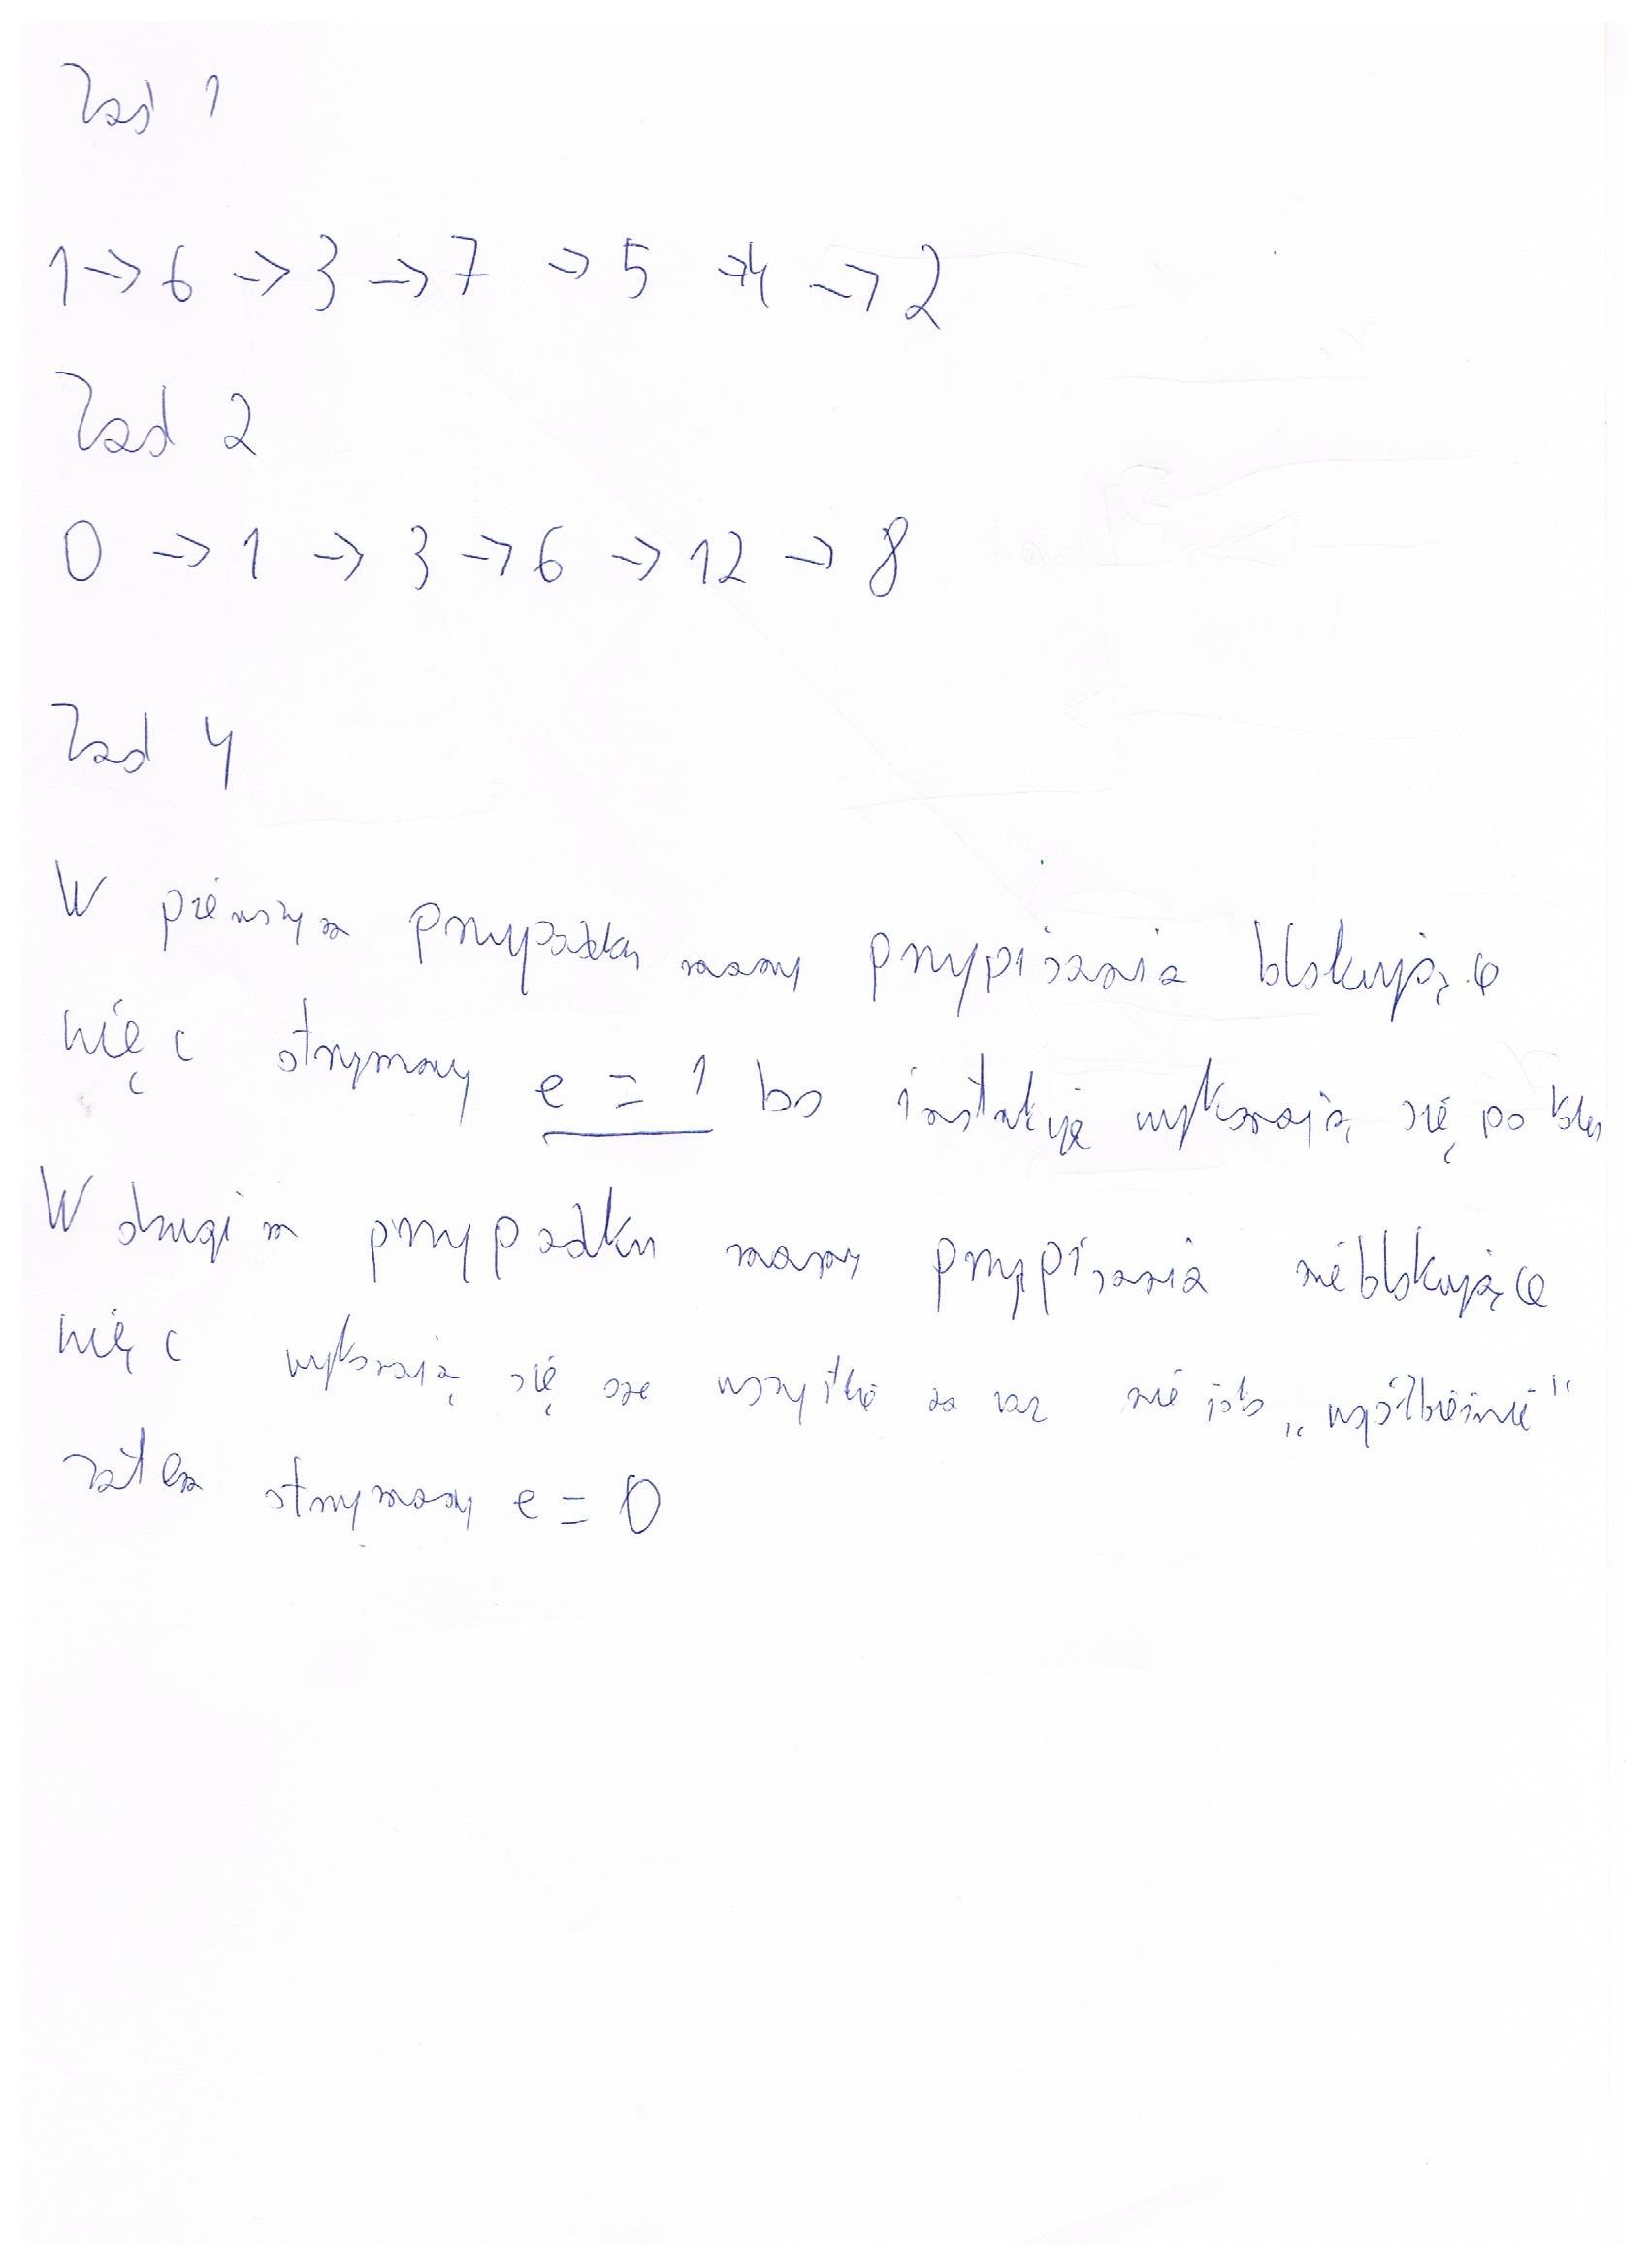 Zad 1
1 -> 6 -> 3 -> 7 -> 5 -> 4 -> 2
Zad 2
0 -> 1 -> 3 -> 6 -> 12 -> 8
Zad 4
W pierwszym przypadku mamy przypisania blokujące
więc otrzymamy e = 1 bo instrukcje wykonają się po kolei
W drugim przypadku mamy przypisania nieblokujące
więc wykonają się one wszystkie na raz nie jako „współbieżnie"
zatem otrzymamy e = 0